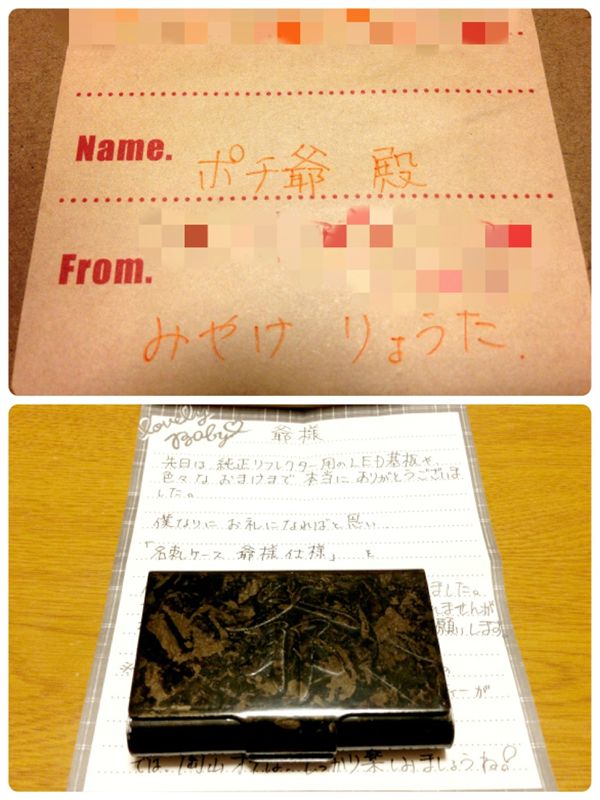 Name.
ポチ爺 殿
From.
みやけ りょうた.
lovely
Baby♡
爺様
先日は 純正リフレクター用のLED基板や、
色々な おまけまで 本当に ありがとうございま
した。
僕なりに お礼になればと思い
「名刺ケース 爺様仕様」 を
ました。
れませんが
願いします
が
ては、岡山オフは、しっかり楽しみましょうね!